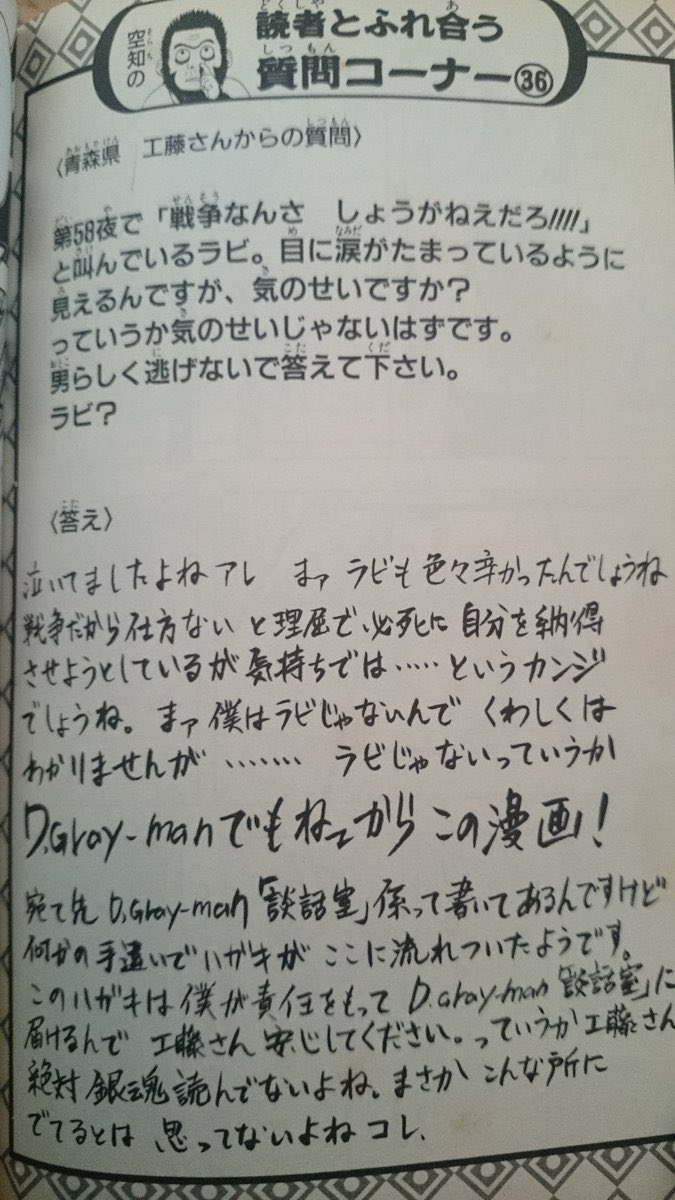 空知の
読者とふれ合う
質問コーナー㊱
〈青森県　工藤さんからの質問〉
第58夜で「戦争なんさ　しょうがねえだろ////」
と叫んでいるラビ。目に涙がたまっているように
見えるんですが、気のせいですか？
っていうか気のせいじゃないはずです。
男らしく逃げないで答えて下さい。
ラビ？
〈答え〉
泣いてましたよね アレ　まァ ラビも色々辛かったんでしょうね
戦争だから仕方ない と理屈で必死に自分を納得
させようとしているが気持ちでは……というカンジ
でしょうね。まァ僕はラビじゃないんで くわしくは
わかりませんが ………　ラビじゃないっていうか
D.Gray-manでもねーから この漫画！
宛て先 D.Gray-man「談話室」係って書いてあるんですけど
何かの手違いでハガキが ここに流れついたようです。
このハガキは僕が責任をもって D.Gray-man「談話室」に
届けるんで 工藤さん 安心してください。っていうか工藤さん
絶対 銀魂読んでないよね。まさか こんな所に
でてるとは 思ってないよね コレ.